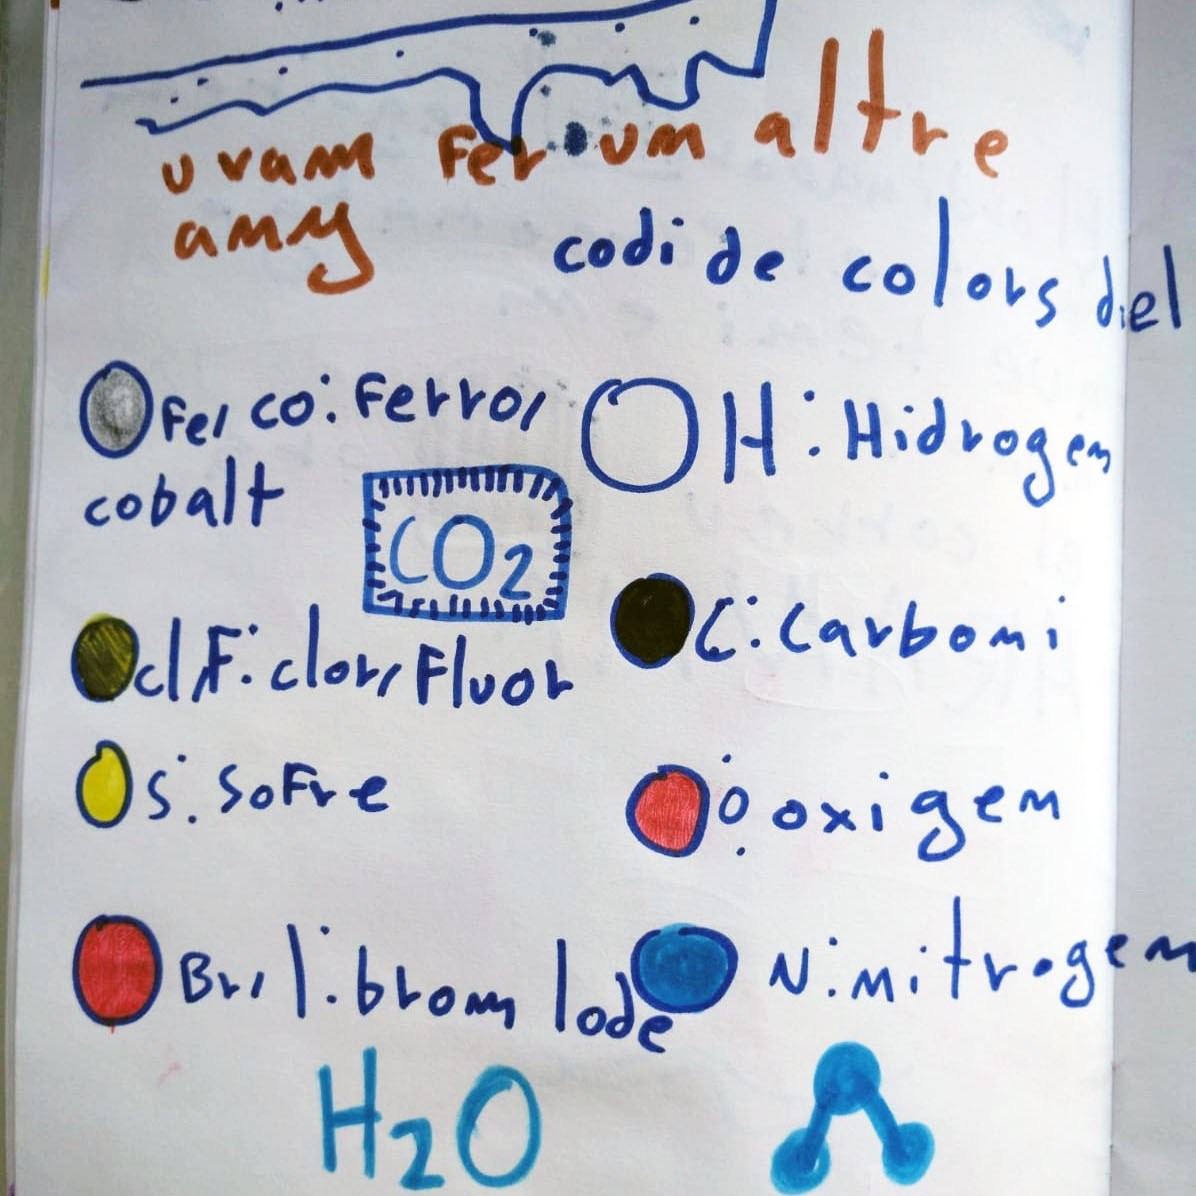 uram fer um altre
amy
codi de colors del
Fe, co: Ferro,
cobalt
H: Hidrogem
CO2
C: Carbomi
cl, F: clor, Fluor
S: Sofre
O: oxigem
Br, I: brom Iode
N: mitrogem
H2O